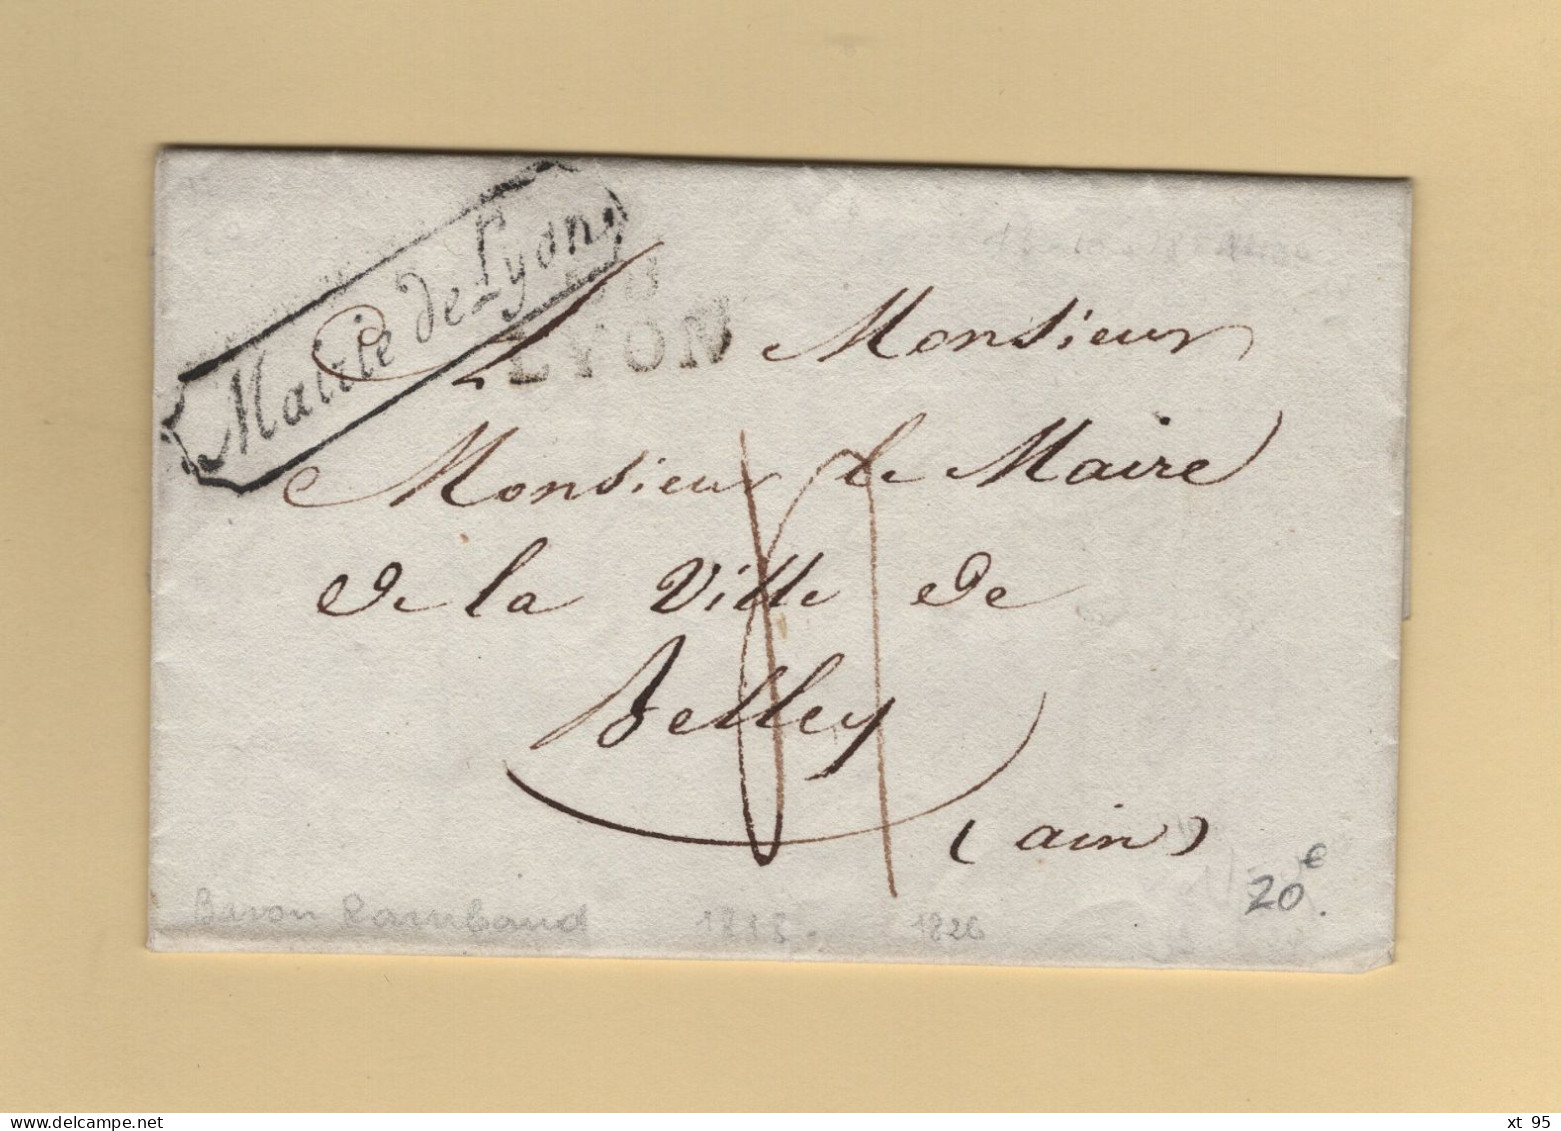 Mairie de Lyon
68
LYON
A Monsieur
Monsieur le Maire
de la Ville de
Belley
(ain)
20€.
Baron Rambaud 1826
delcampe.net
xt 95